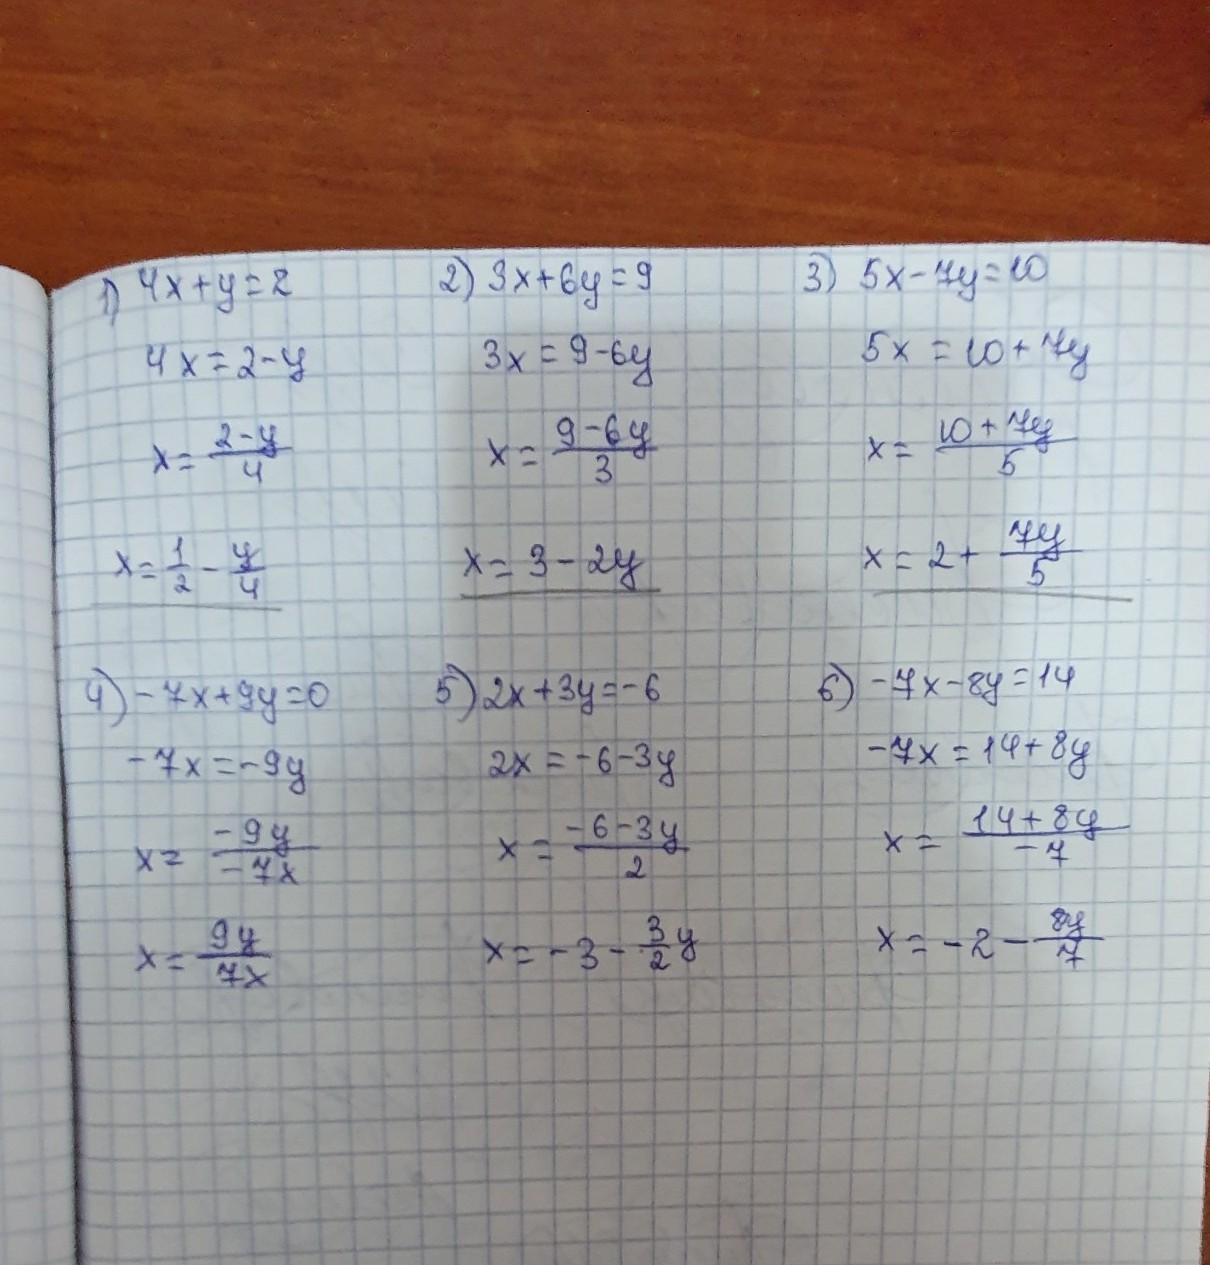 1) 4x+y=2
4x=2-y
x=\frac{2-y}{4}
x=\frac{1}{2}-\frac{y}{4}
2) 3x+6y=9
3x=9-6y
x=\frac{9-6y}{3}
x=3-2y
3) 5x-7y=10
5x=10+7y
x=\frac{10+7y}{5}
x=2+\frac{7y}{5}
4) -7x+9y=0
-7x=-9y
x=\frac{-9y}{-7x}
x=\frac{9y}{7x}
5) 2x+3y=-6
2x=-6-3y
x=\frac{-6-3y}{2}
x=-3-\frac{3}{2}y
6) -7x-8y=14
-7x=14+8y
x=\frac{14+8y}{-7}
x=-2-\frac{8y}{7}